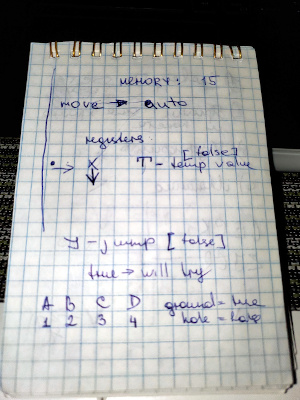 MEMORY: 15
move → auto
registers
[false]
• → X T - temp value
J - jump [false]
true → will try
A B C D ground = true
1 2 3 4 hole = false